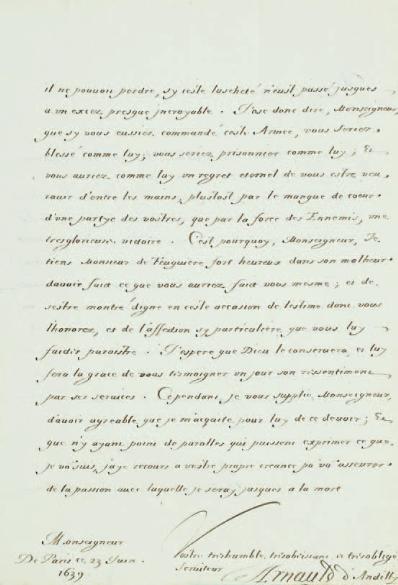 il ne pouvoit perdre, sy ceste lascheté n'eust passé jusques
a vn excez presque jncroyable. J'ose donc dire, Monseigneur,
que sy vous eussiez commandé ceste Armee, vous seriez
blessé comme luy, vous seriez prisonnier comme luy; Et
vous auriez comme luy vn regret eternel de vous estre veu
d'entre les mains, plustost par le manque de coeur
d'vne partye des vostres, que par la force des Ennemis, vne
tresglorieuse victoire. C'est pourquoy, Monseigneur, Je
tiens Monsieur de Feuquiere fort heureux dans son malheur
davoir faict ce que vous auriez faict vous mesme; et de
sestre montré digne en ceste occasion de lestime dont vous
lhonorez, et de l'affection sy particuliere que vous luy
faictes paroistre. J'espere que Dieu le conservera et luy
fera la grace de vous tesmoigner vn jour son ressentiment
par ses services. Cependant je vous supplie Monseigneur
d'avoir agreable que je m'acquite pour luy de ce devoir; Et
que n'y ayant point de parolles qui puissent exprimer ce que
je vo' suis, j'aye recours a vostre propre creance po' vo' asseurer
de la passion avec laquelle je seray jusques a la mort
Monseigneur
De Paris ce 23 Juin
1639
Vostre treshumble, tresobeissant, et tresoblige
seruiteur
Arnauld d'Andilly